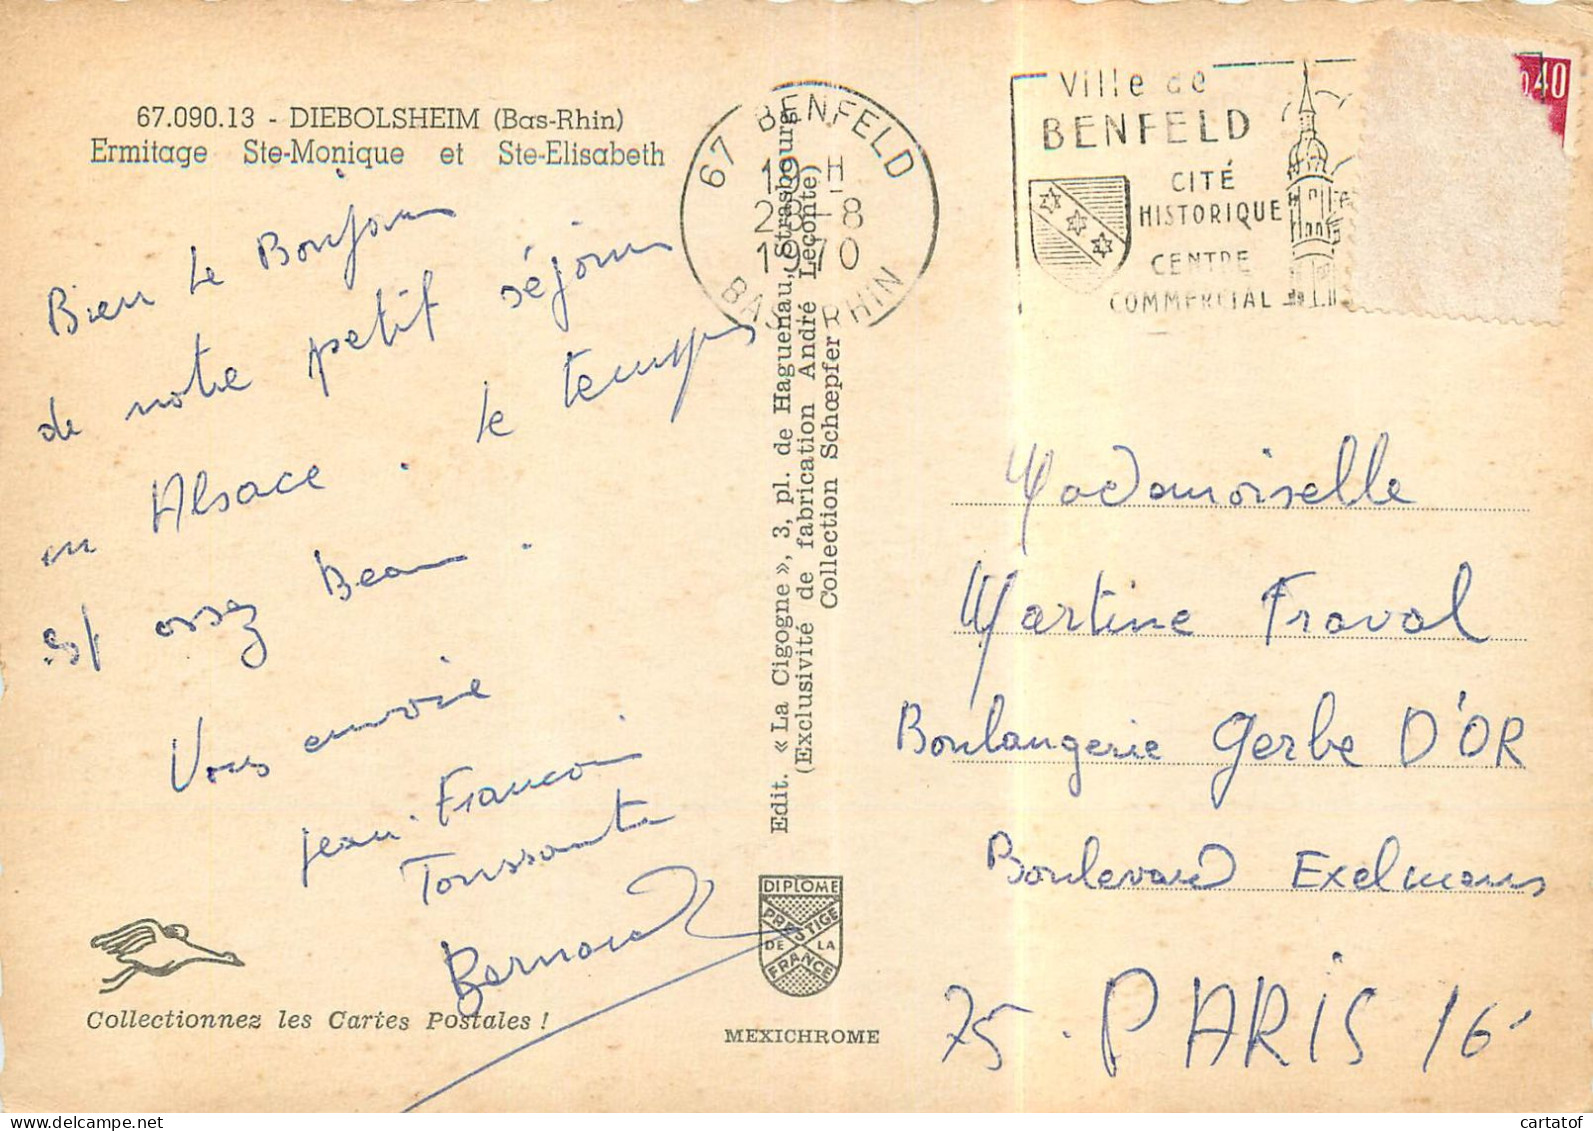 67.090.13 - DIEBOLSHEIM (Bas-Rhin)
Ermitage Ste-Monique et Ste-Elisabeth
Bien le Bonjour
de notre petit séjour
en Alsace. le temps
est assez Beau.
Vous envoie
Jean-Francois
Toussante
Bernard
Collectionnez les Cartes Postales !
Edit. « La Cigogne », 3, pl. de Haguenau, Strasbourg
(Exclusivité de fabrication André Leconte)
Collection Schœpfer
DIPLOME
PRESTIGE
DE LA
FRANCE
MEXICHROME
67 BENFELD
H
28-8
1970
BAS-RHIN
Ville de
BENFELD
CITÉ
HISTORIQUE
CENTRE
COMMERCIAL
0,40
Mademoiselle
Martine Fraval
Boulangerie Gerbe D'OR
Boulevard Exelmans
75 - PARIS 16
cartatof